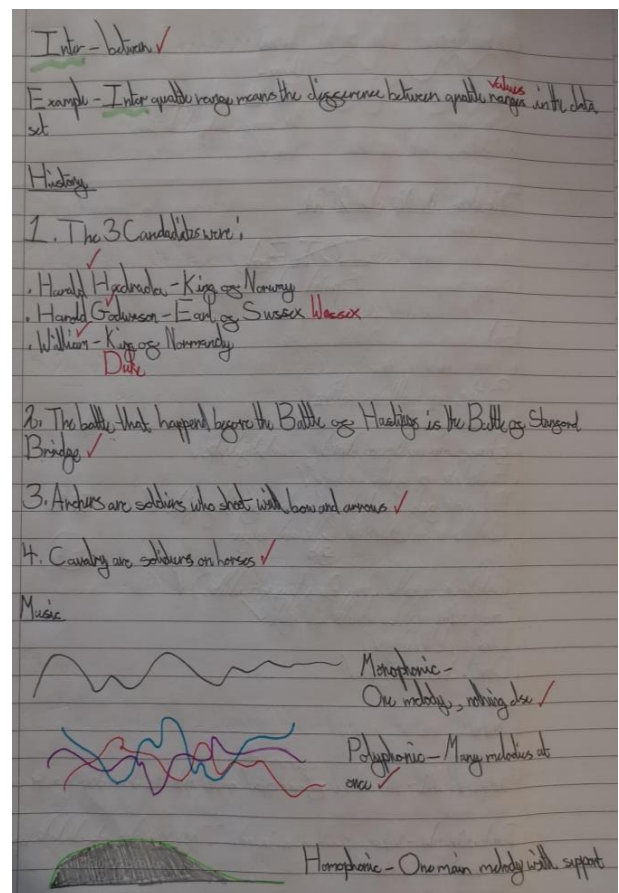 Inter - between
Example - Inter quatile range means the difference between quatile ranges values in the data
set
History
1. The 3 Candadides were:
. Harald Hadrada - King of Norway
. Harold Godwinson - Earl of Sussex Wessex
. William - King of Normandy
Duke
2. The battle that happend before the Battle of Hastings is the Battle of Stanford
Bridge
3. Archers are soldiers who shoot with bow and arrows
4. Cavalry are soldiers on horses
Music
Monophonic -
One melody, nothing else
Polyphonic - Many melodies at
once
Homophonic - One main melody with support